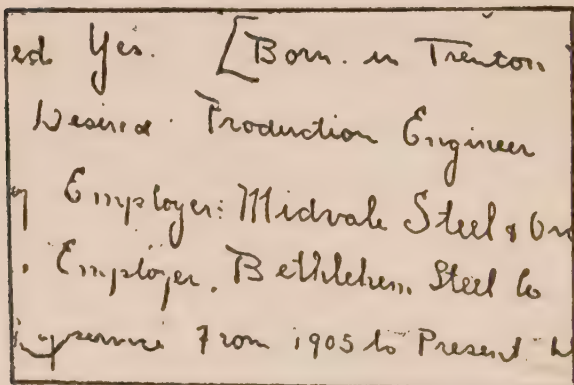 ed Yes. [Born. in Trenton
Desired Production Engineer
Employer: Midvale Steel & Or
. Employer, Bethlehem Steel Co
service From 1905 to Present